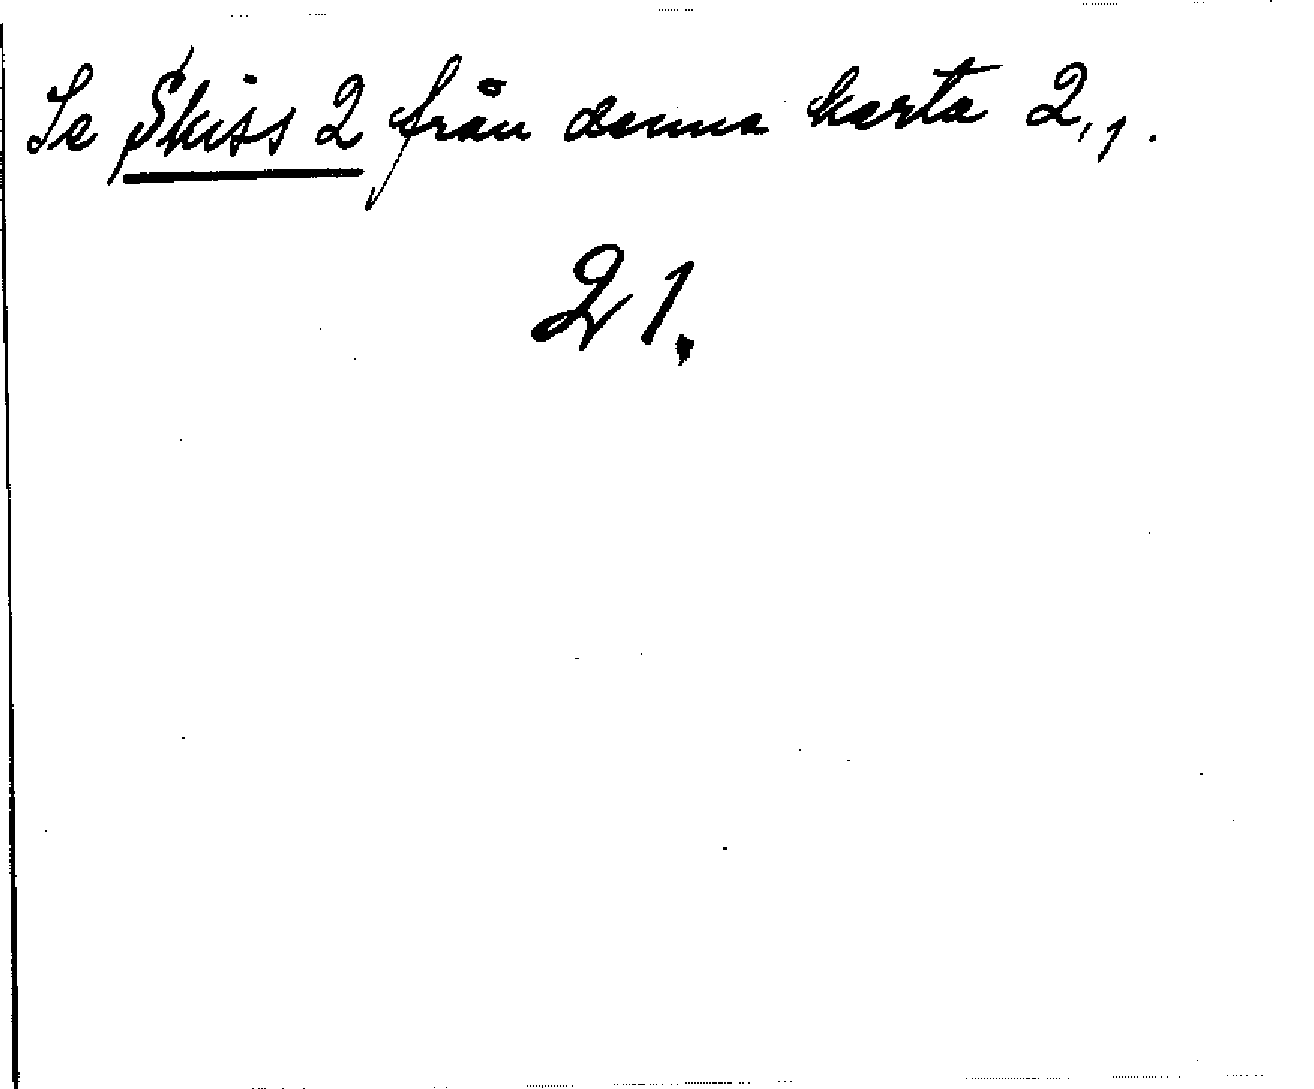 Se Skiss 2 från denna karta 2,1.
21.